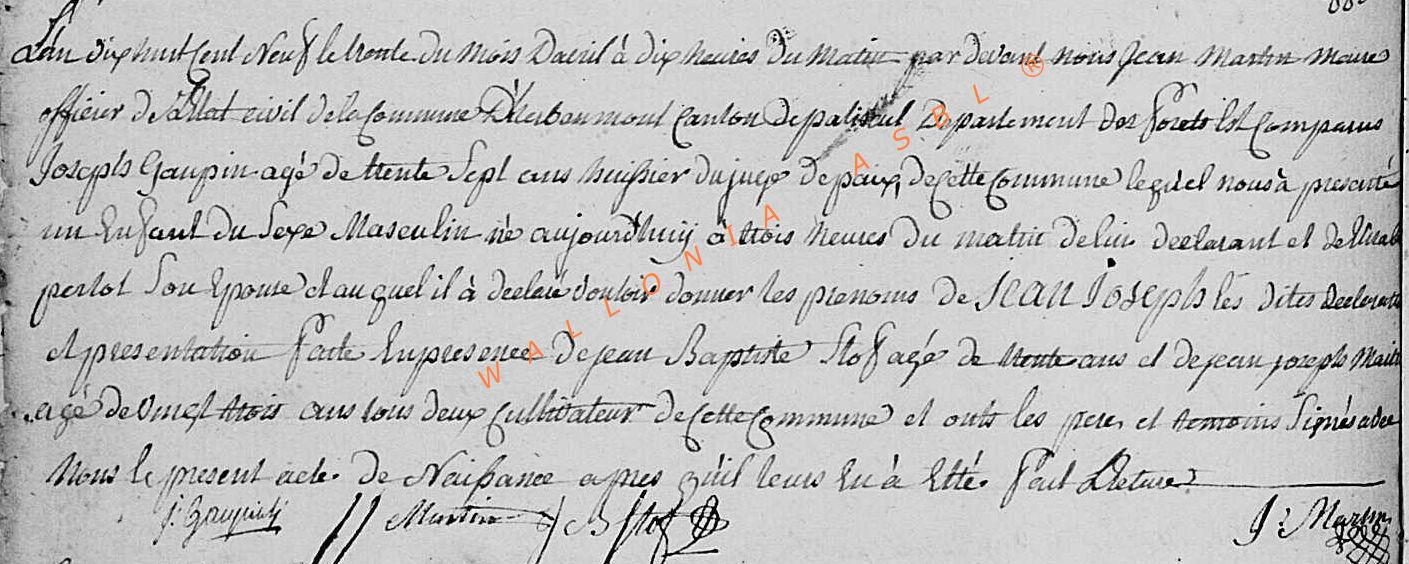 L'an dix huit Cent Neuf le trente du Mois D'avril à dix heures du Matin par devant nous Jean Martin Maire
officier de l'Etat civil de la Commune D'herbeumont Canton de paliseul Departement des Forets Est Comparus
Joseph Gaupin agé de trente Sept ans huissier du juge de paix, de Cette Commune lequel nous à presenté
un Enfant du Sexe Masculin né aujourd'huij à trois heures du matin de lui declarant et de
perlot Son Epouse et au quel il à declaré vouloir donner les prenoms de JEAN Joseph les dites
et presentation Faite En presence de jean Baptiste Stof agé de trente ans et de jean joseph
agé de Vingt trois ans tous deux Cultivateur de Cette Commune et onts les pere et temoins Signés avec
Nous le present acte de Naissance apres qu'il leurs En à Etté Fait Lecture
Martin J B Stof J: Martin
WALLONIA ASBL ®